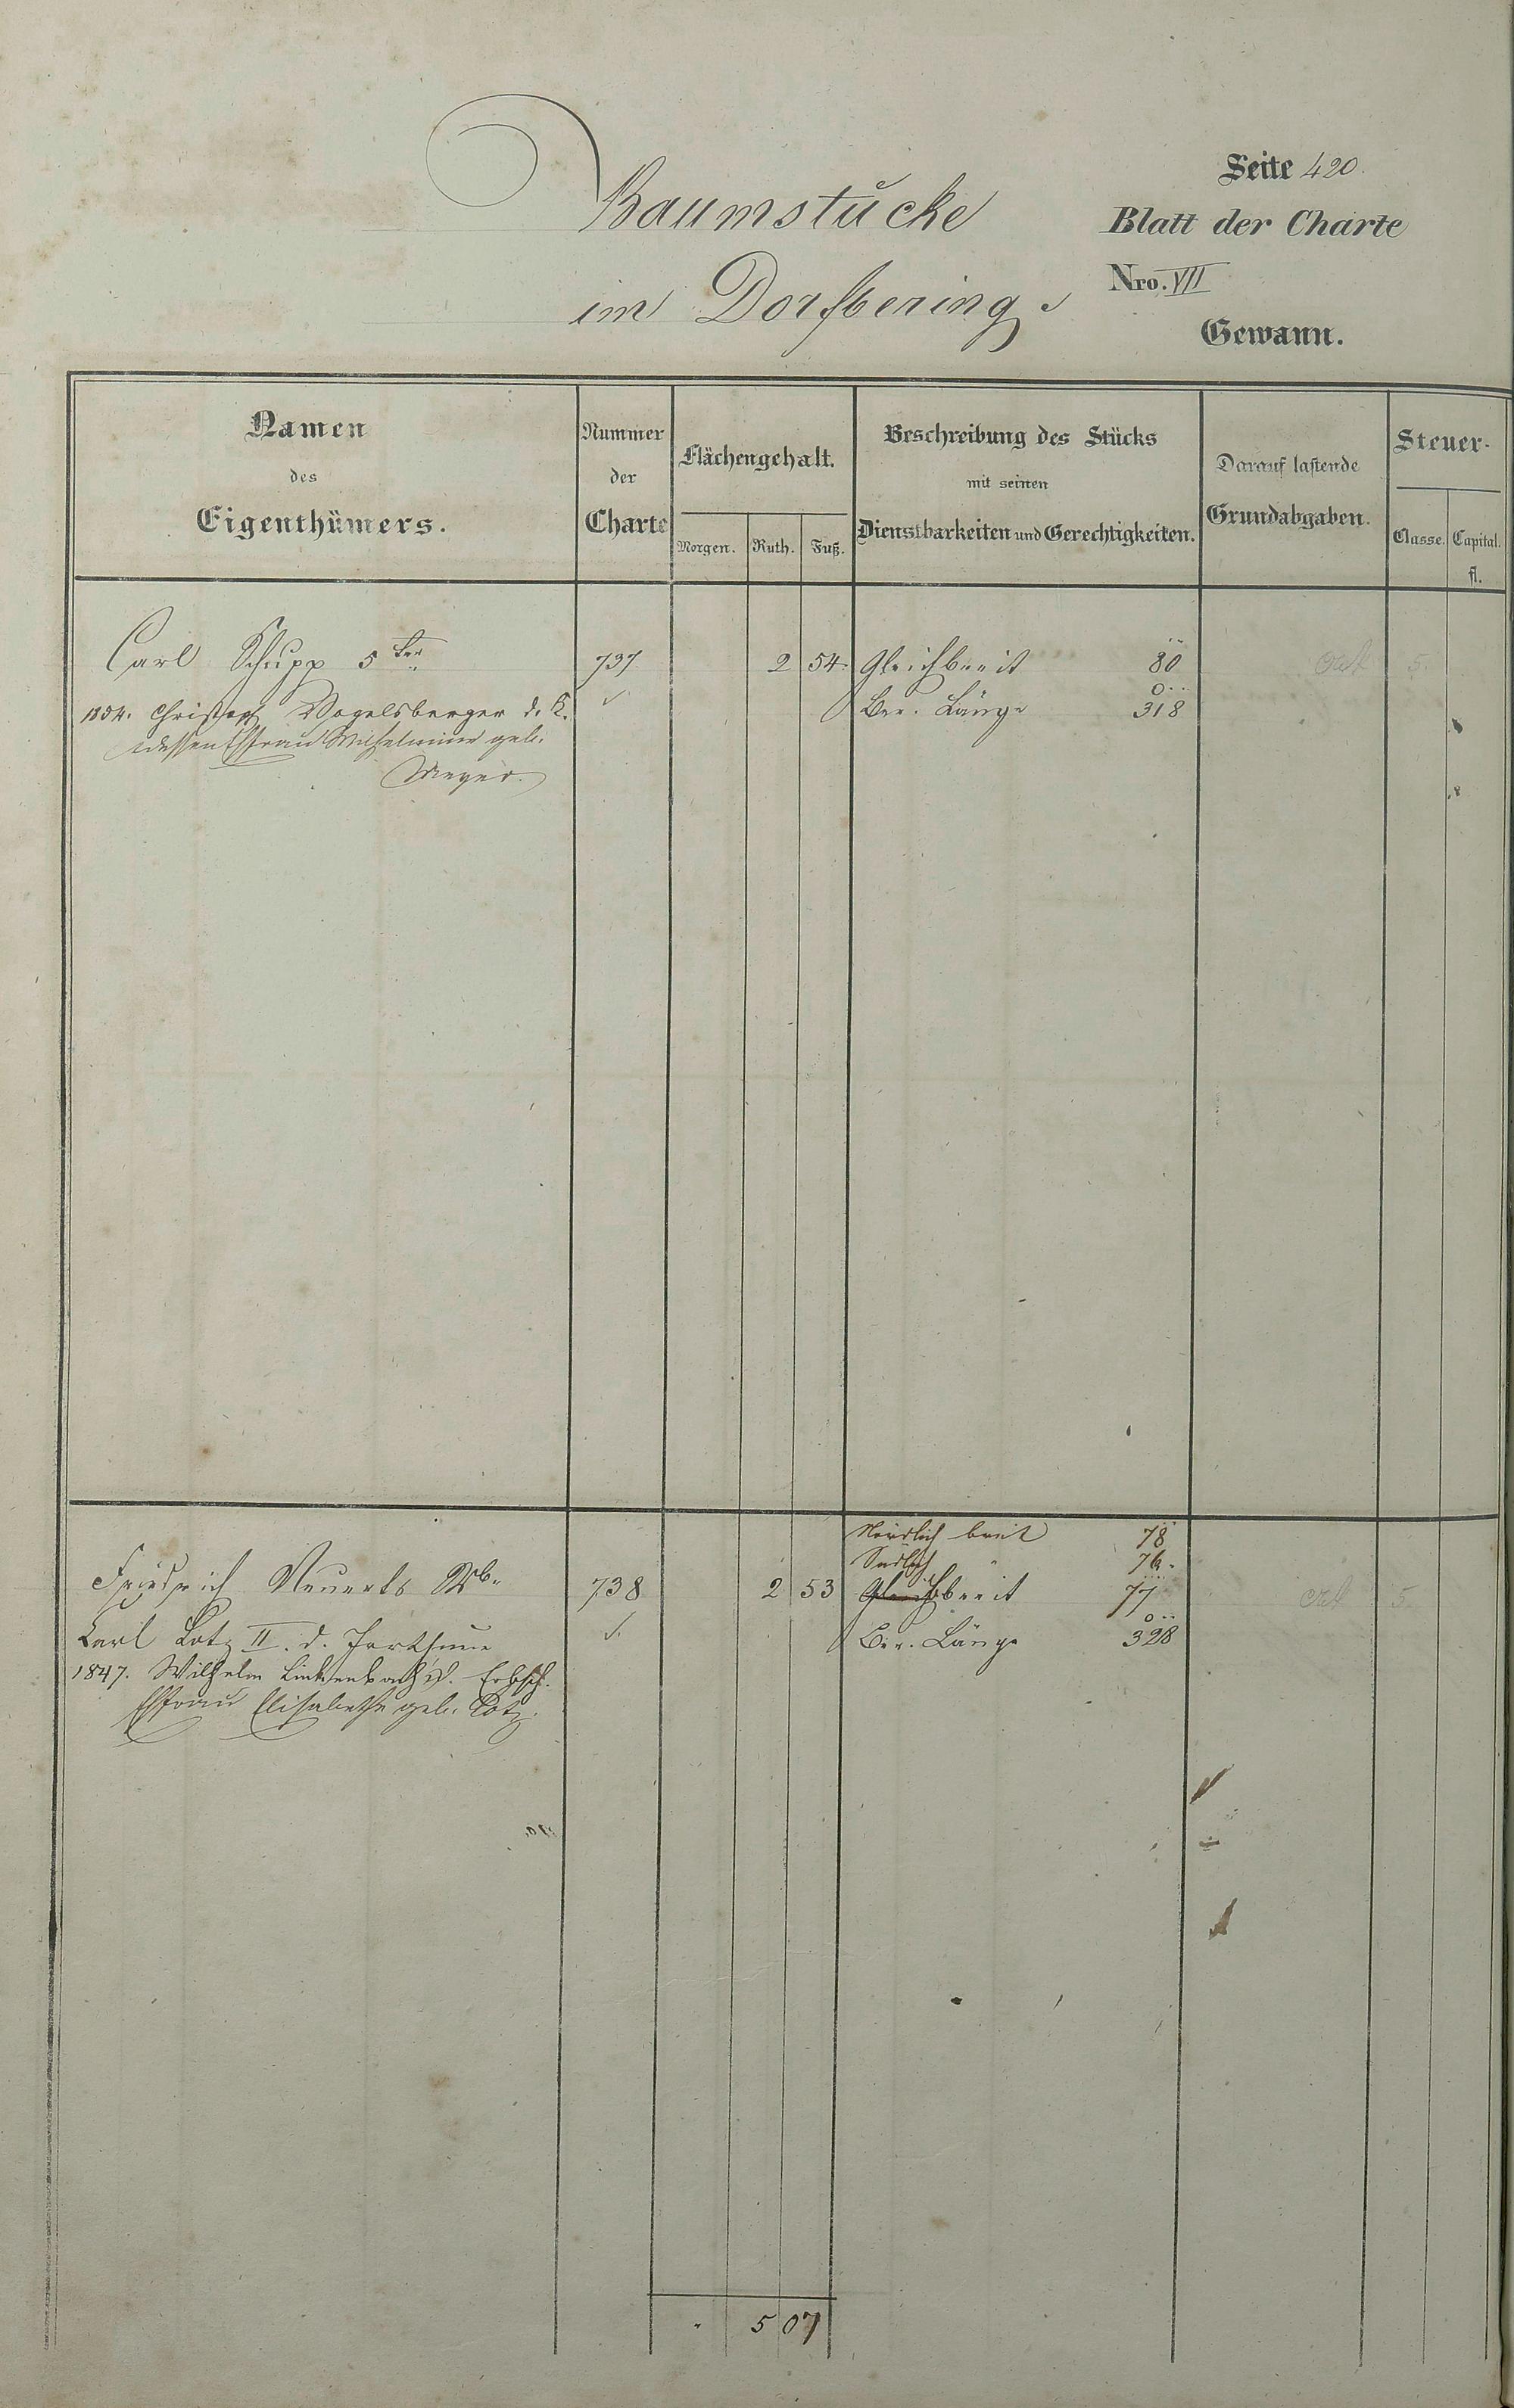 Seite 420.
Baumstücke
Blatt der Charte
im Dorfbering.
Nro. VII
Gewann.
Namen
des
Eigenthümers.
Nummer
der
Charte
Flächengehalt.
Morgen. Ruth. Fuß.
Beschreibung des Stücks
mit seinen
Dienstbarkeiten und Gerechtigkeiten.
Darauf lastende
Grundabgaben.
Steuer-
Classe. Capital.
fl.
Carl Schupp 5ter 737 2 54 Gleichbreit 80 5.
1854. Christoph Vogelsberger d. K. Ber. Länge 318
dessen Ehefrau Wilhelmine geb.
Meyer.
Nördlich breit 78
Südlich " 76.
Friedrich Neuerts Wb. 738 2 53 Gleichbreit 77 5
Carl Lotz II. d. Ber. Länge 328
1847. Wilhelm Linkenbach Erbsch.
Ehefrau Elisabethe geb. Lotz.
5 07